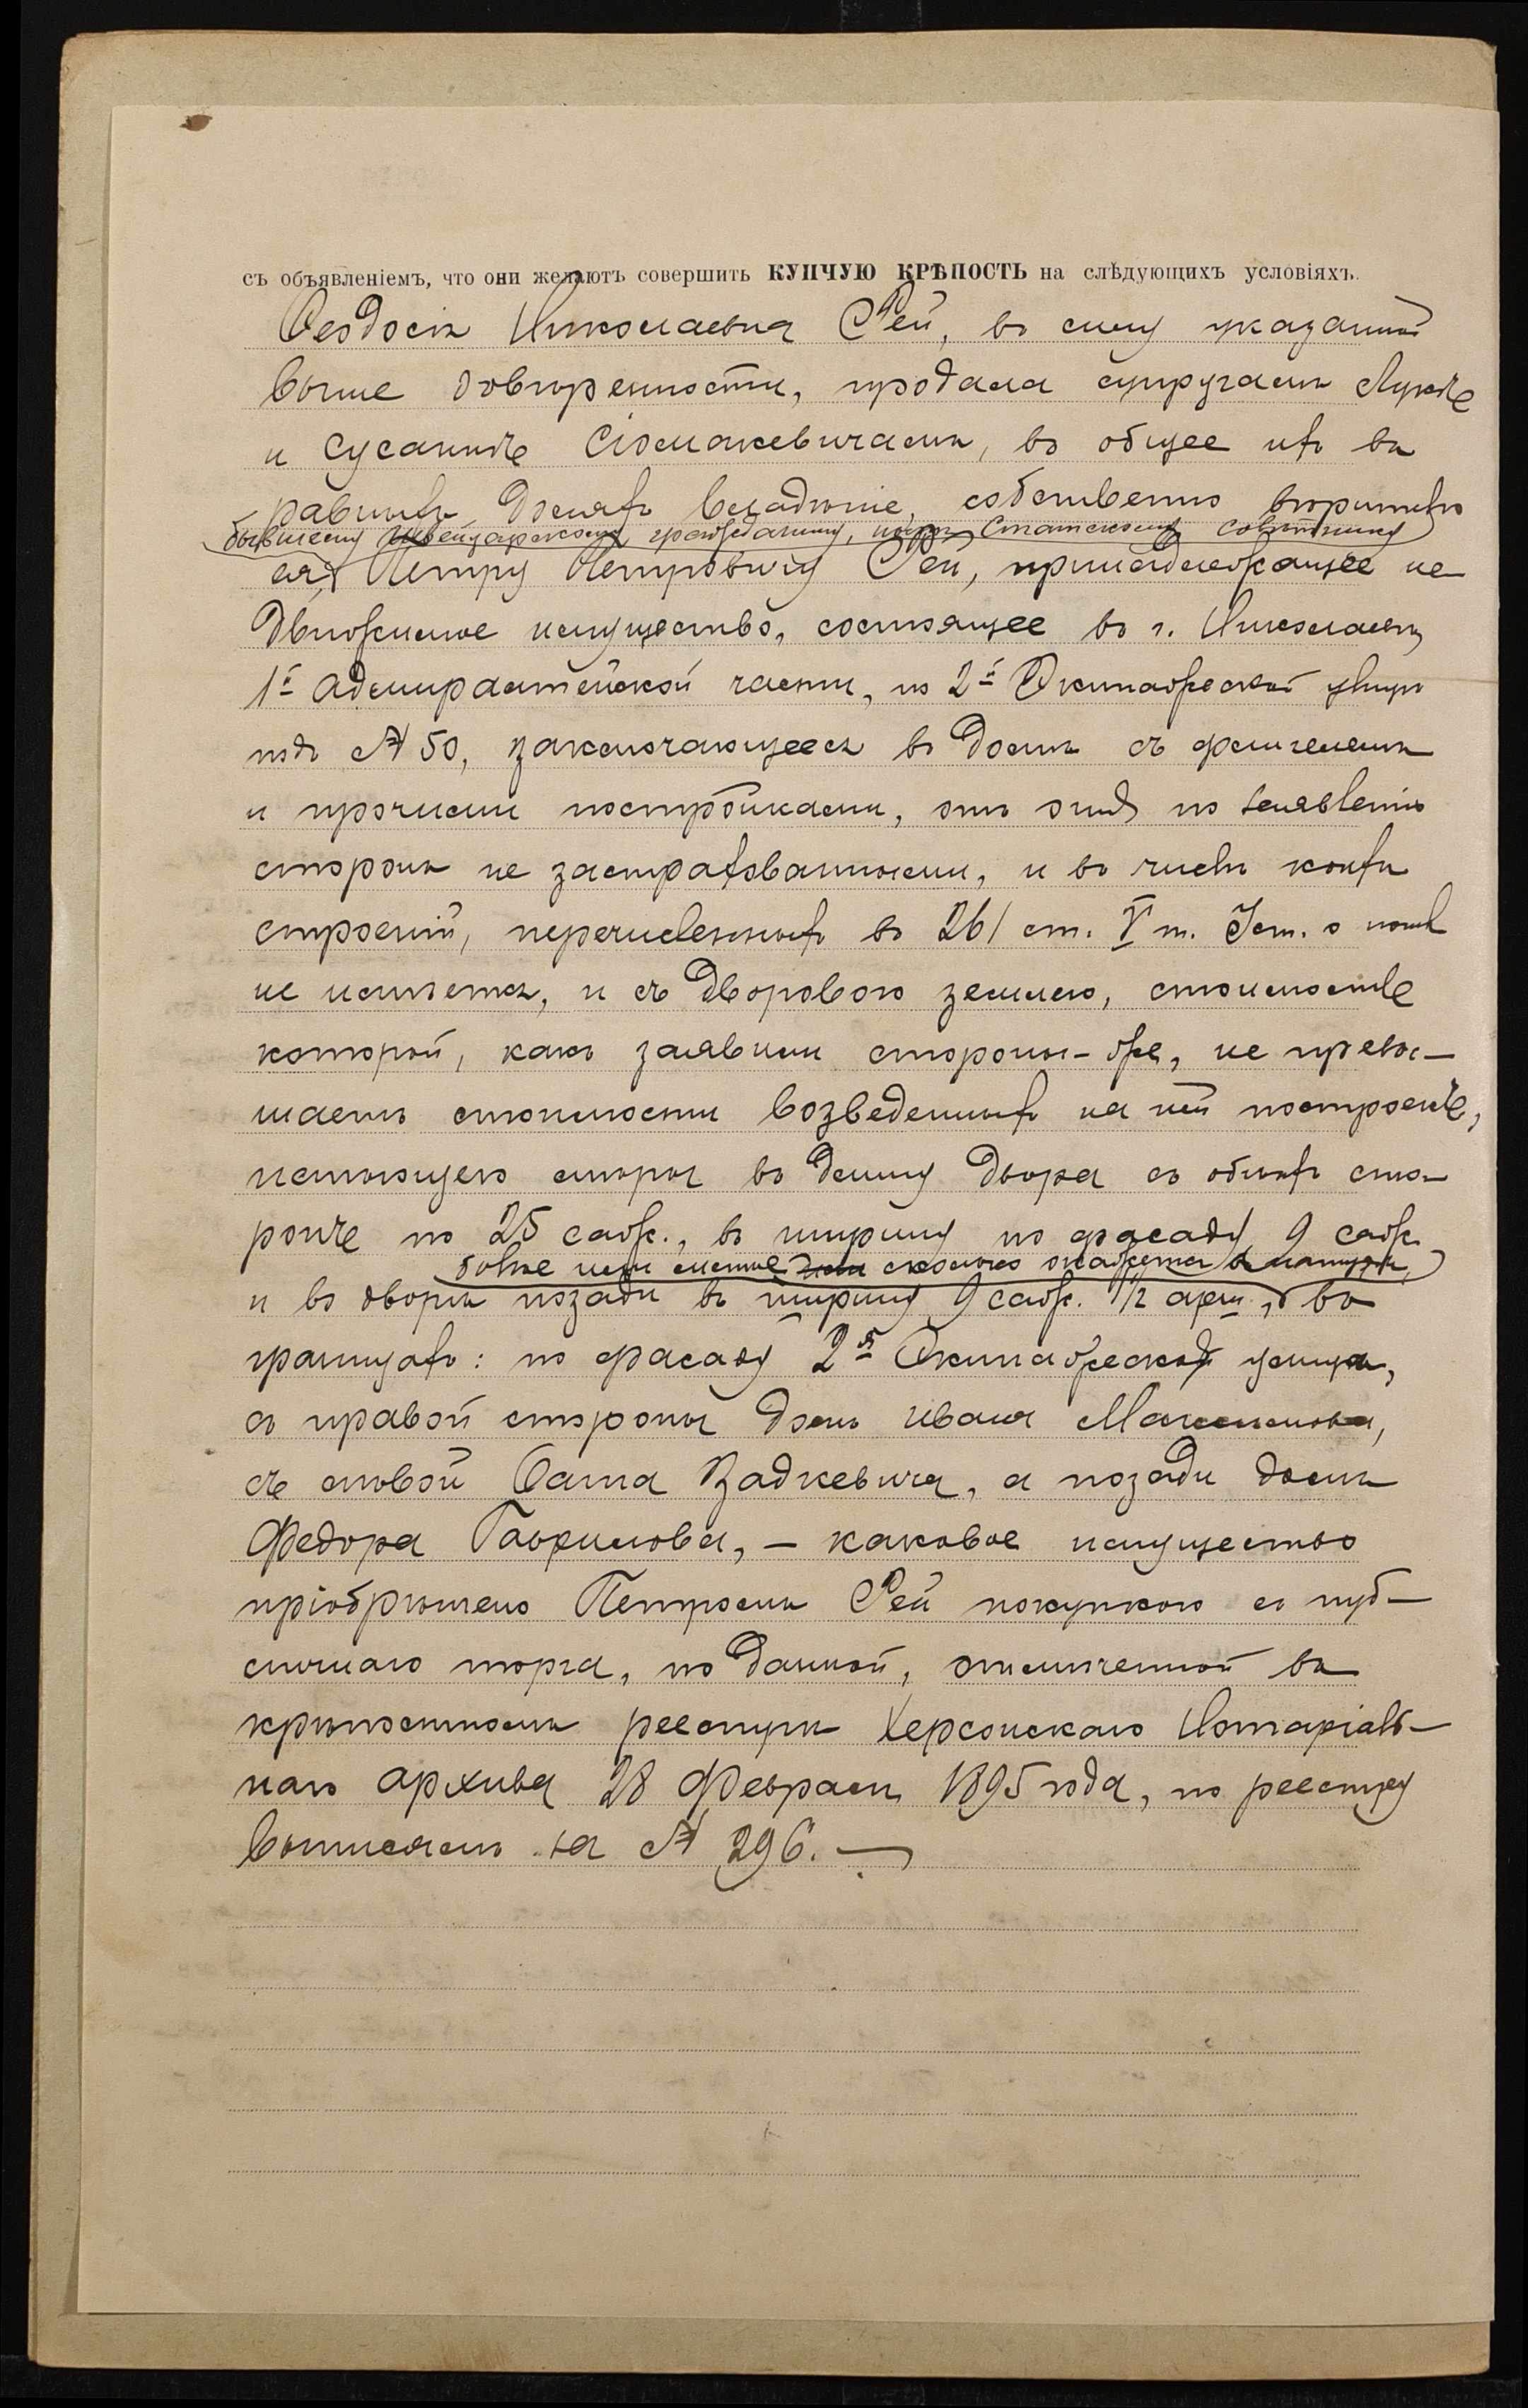 съ объявленіемъ, что они желаютъ совершить КУПЧУЮ КРѢПОСТЬ на слѣдующихъ условіяхъ.
Ѳеодосія Николаевна Рей, въ силу указанной
выше довѣренности, продала супругамъ Лукѣ
и Сусаннѣ Сіомакевичамъ, въ общее ихъ въ
равныхъ доляхъ владѣніе, собственно вѣрителю
бывшему Швейцарскому гражданину, нынѣ Статскому Совѣтнику
ея, Петру Петровичу Рей, принадлежащее не
движимое имущество, состоящее въ г. Николаевѣ,
1й Адмиралтейской части, по 2й Экипажеской улицѣ
подъ № 50, заключающееся въ домѣ съ флигелемъ
и прочими постройками, отъ огня по заявленію
сторонъ не застрахованными, и въ числѣ коихъ
строеній, перечисленныхъ въ 261 ст. V т. Уст. о пошл
не имѣется, и съ дворовою землею, стоимость
которой, какъ заявили стороны-же, не превы-
шаетъ стоимости возведенныхъ на ней построекъ,
имѣющею мѣры въ длину двора съ обѣихъ сто-
ронъ по 25 саж., въ ширину по фасаду 9 саж.
болѣе или менѣе сколько окажется въ натурѣ,
и въ дворѣ позади въ ширину 9 саж. 1½ арш., въ
границахъ: по фасаду 2я Экипажеская улица,
съ правой стороны домъ Ивана Максимова,
съ лѣвой Адама Вадкевича, а позади домъ
Федора Гаврилова, – каковое имущество
пріобрѣтено Петромъ Рей покупкою съ пуб-
личнаго торга, по данной, отмѣченной въ
крѣпостномъ реестрѣ Херсонскаго Нотаріаль-
наго Архива 28 Февраля 1895 года, по реестру
выписямъ за № 296. —